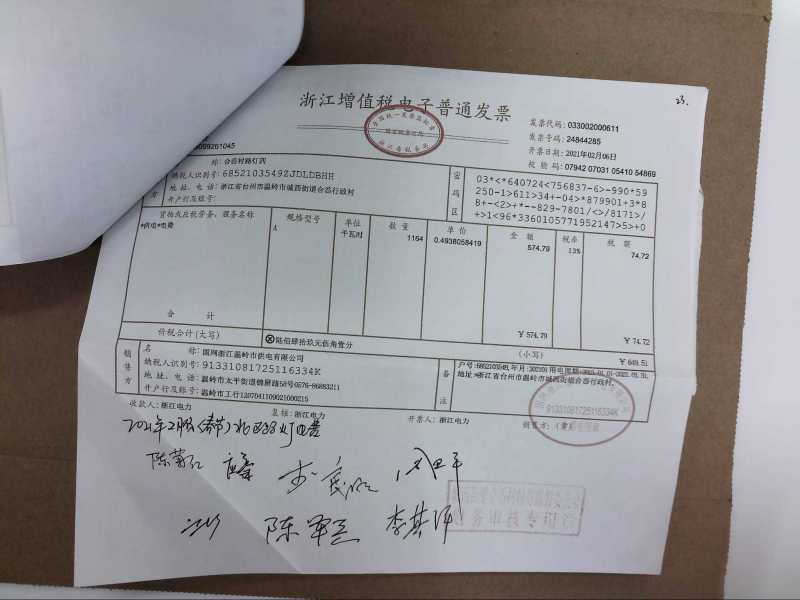 23.
浙江增值税电子普通发票
发票代码: 033002000611
发票号码: 24844285
开票日期: 2021年02月06日
校验码: 07942 07031 05410 54869
099261045
称: 合岙村路灯四
纳税人识别号: 6852103549ZJDLDBHH
地址、电话: 浙江省台州市温岭市城西街道合岙行政村
开户行及账号:
密码区
03*<*640724<756837-6>-990*59
250-1>611>34+-04>*879901+3*8
8+-<2>+*--829-7801/<>/8171>/
+>1<96*3360105771952147>5>+0
货物或应税劳务、服务名称 规格型号 单位 数量 单价 金额 税率 税额
*供电*电费 千瓦时 1164 0.4938058419 574.79 13% 74.72
合计 ¥ 574.79 ¥ 74.72
价税合计(大写) ⊗陆佰肆拾玖元伍角壹分 (小写) ¥ 649.51
销售方
名称: 国网浙江温岭市供电有限公司
纳税人识别号: 91331081725116334K
地址、电话: 温岭市太平街道锦屏路58号0576-86883211
开户行及账号: 温岭市工行1207041109021000215
备注
地址:浙江省台州市温岭市城西街道合岙行政村,
收款人: 浙江电力 复核: 浙江电力 开票人: 浙江电力 销售方: (章)
91331081725116334K
陈军 李其